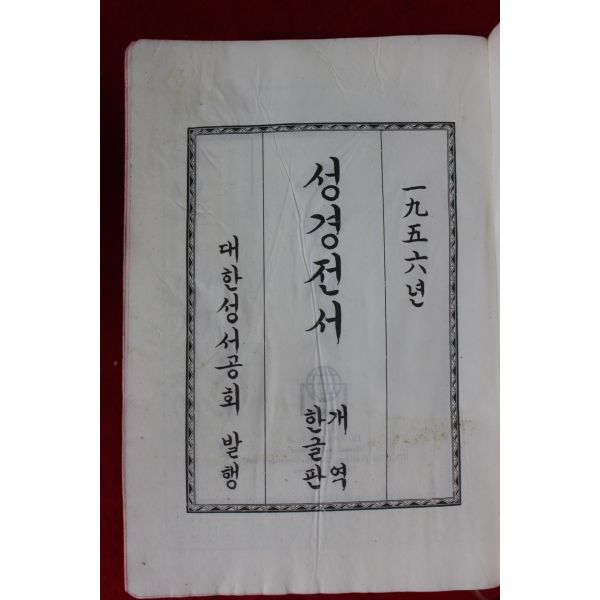 一九五六년
성경전서
개역
한글판
대한성서공회 발행